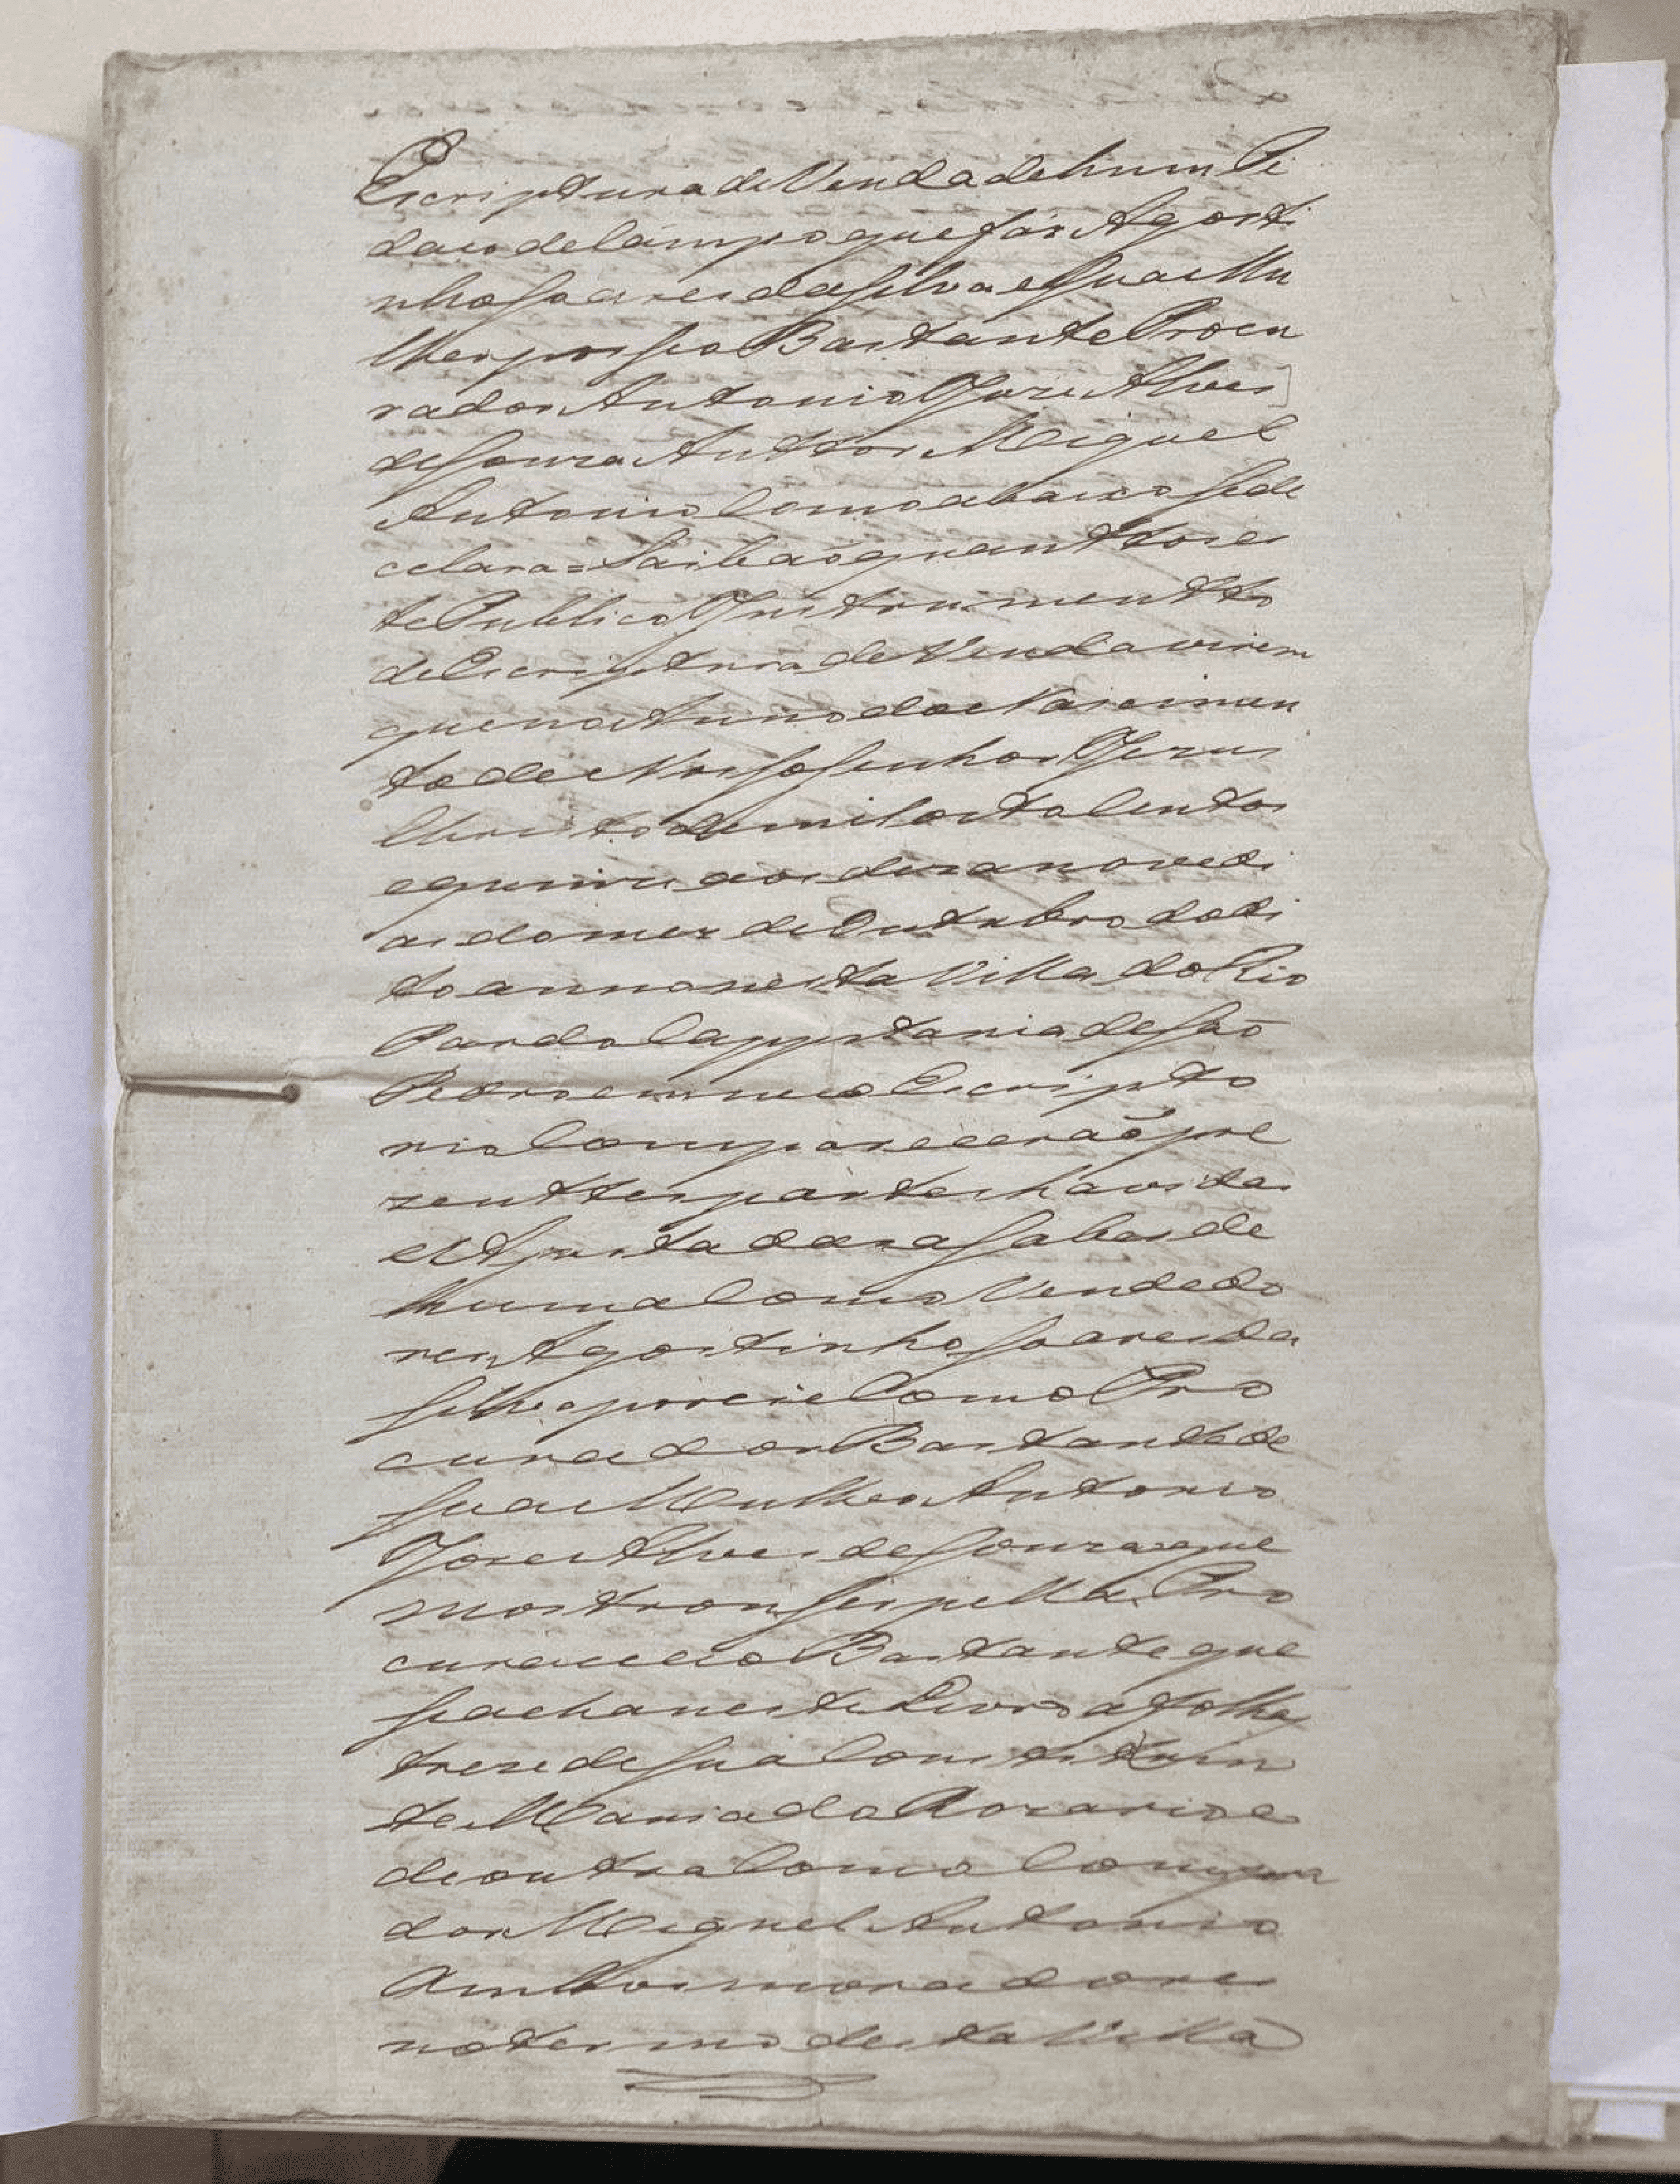 Escriptura de Venda de hum Pe
daco de Campo que fas Agosti
nho Soares da Silva e Sua Mu
lher por seo Bastante Procu
rador Antonio Joze Alves
de Souza Auttor Miguel
Antonio Como abaixo Se de
clara = Saibaõ quanttos es
te Publico Instrumentto
de Escriptura de Venda virem
que no Anno do Nascimen
to de Nosso Senhor Jezus
Christo de mil oito Centos
e quinze aos dezanove di
as do mez de Outubro do di
to anno nesta Villa do Rio
Pardo Cappitania de Saõ
Pedro em meo Escripto
rio Compareceraõ pre
zenttes partes havidas
e Ajustadas a saber de
huma Como Vendedo
res Agostinho Soares da
Silva por si e Como Pro
curador Bastante de
Sua Mulher Antonio
Joze Alves de Souza que
mostrou ser pella Pro
curacao Bastante que
se acha neste Livro a folha
treze de Sua Constituin
te Maria do Rozario e
de outra Como Compra
dor Miguel Antonio
Ambos moradores
no termo desta Villa